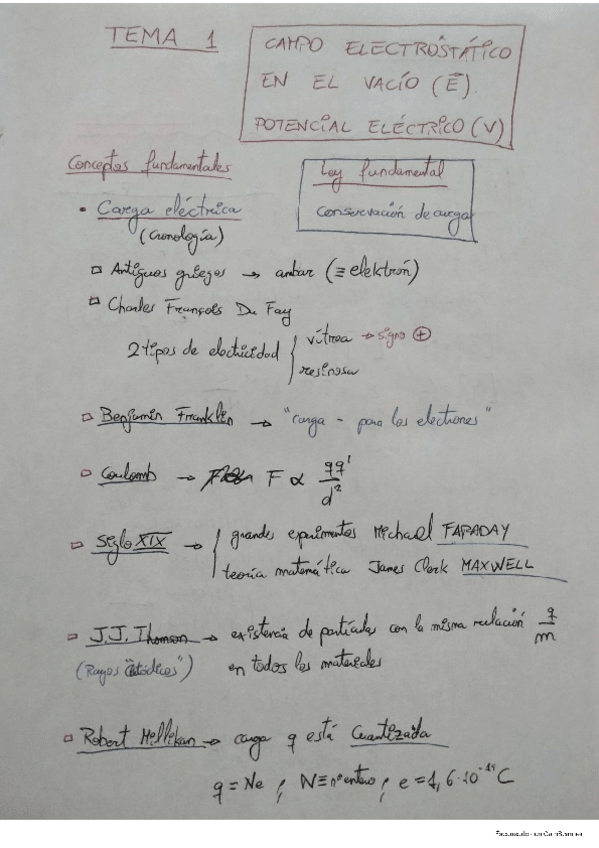 TEMA 1
CAMPO ELECTROSTÁTICO
EN EL VACÍO (E⃗).
POTENCIAL ELÉCTRICO (V)
Conceptos fundamentales
Ley fundamental
Conservación de carga
• Carga eléctrica
(Cronología)
Antiguos griegos → ambar (≡ elektrón)
Charles François Du Fay
2 tipos de electricidad { vítrea → signo ⊕
resinosa
Benjamin Franklin → "carga - para los electrones"
Coulomb → F ∝ qq'/d²
Siglo XIX → { grandes experimentos Michael FARADAY
teoría matemática James Clerk MAXWELL
J.J. Thomson → existencia de partículas con la misma relación q/m
(Rayos "Catódicos") en todos los materiales
Robert Millikan → carga q está Cuantizada
q = Ne ; N ≡ nº entero ; e = 1,6·10⁻¹⁹ C